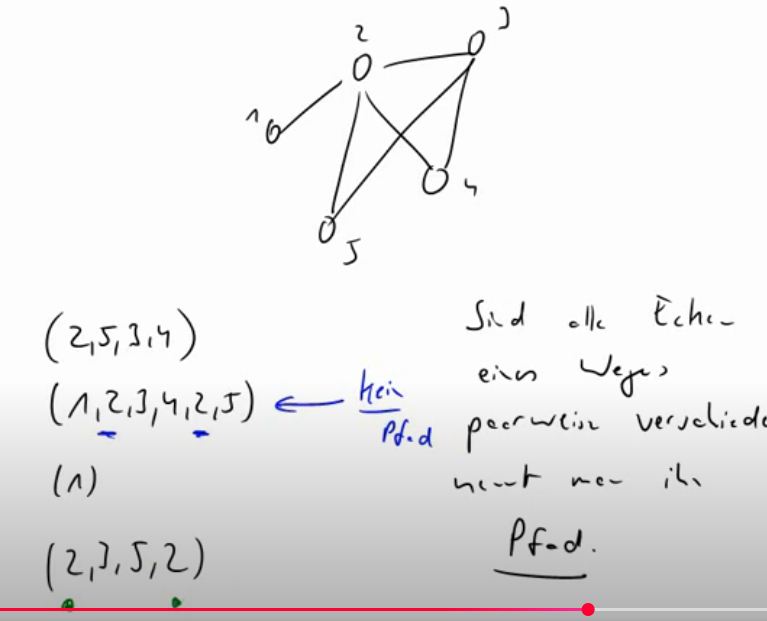 2
3
1
4
5
(2,5,3,4)
(1,2,3,4,2,5)
kein
Pfad
(1)
(2,3,5,2)
Sind alle Ecken
eines Weges
paarweise verschiede
nennt man ihn
Pfad.